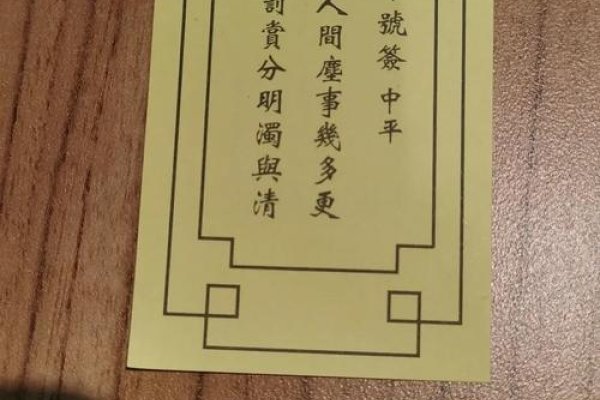 號簽 中平
人間塵事幾多更
賞分明濁與清